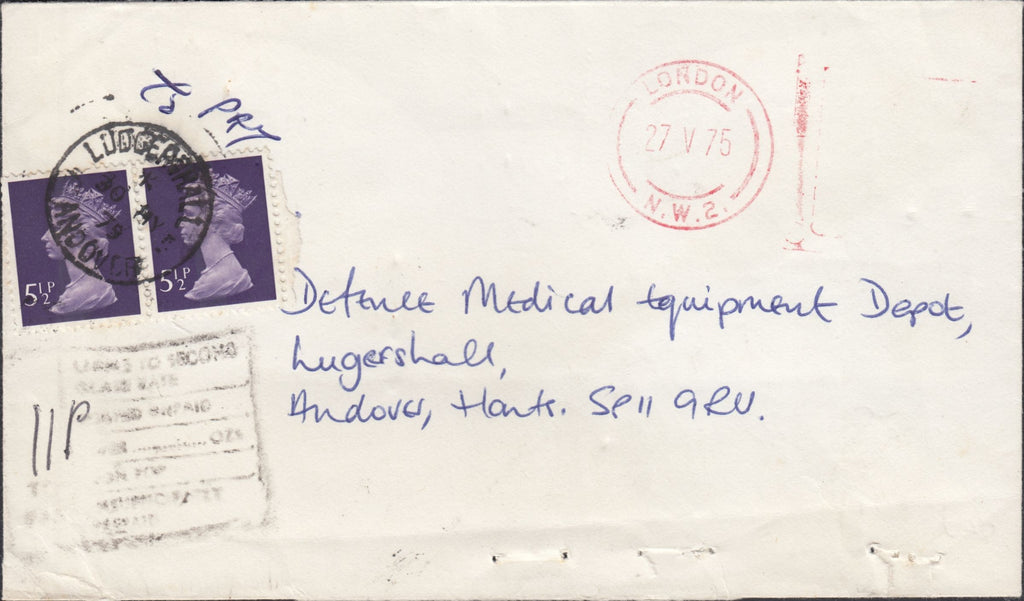 To PRY
LUDGERSHALL
30 MY
79
ANDOVER
5½P
5½P
LONDON
27 V 75
N.W.2.
Defence Medical Equipment Depot,
Lugershall,
Andover, Hants. SP11 9RU.
TO SECOND
CLASS RATE
OZS
11P